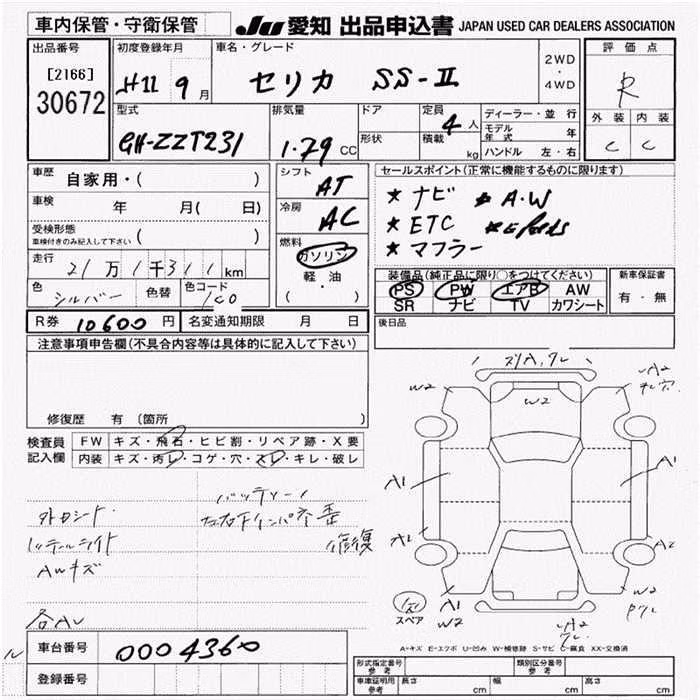 車内保管・守衛保管
JU 愛知 出品申込書 JAPAN USED CAR DEALERS ASSOCIATION
出品番号
[2166]
30672
初度登録年月
H11 9月
車名・グレード
セリカ SS-Ⅱ
2WD
・
4WD
評価点
R
外装 内装
C C
型式
GH-ZZT231
排気量
1.79 CC
ドア
形状
定員
4人
積載
kg
ディーラー・並行
モデル年式 年
ハンドル 左・右
車歴 自家用・( )
車検 年 月( 日)
受検形態
車検付きのみ記入して下さい ( )
走行 21万1千311km
色 シルバー 色替 色コード 1C0
シフト AT
冷房 AC
燃料
ガソリン
軽・油
( )
セールスポイント(正常に機能するものに限ります)
★ ナビ ★ A・W
★ ETC
★ マフラー
装備品(純正品に限り○をつけてください)
PS PW エアB AW
SR ナビ TV カワシート
新車保証書
有・無
R券 10600円 名変通知期限 月 日
後日品
注意事項申告欄(不具合内容等は具体的に記入して下さい)
修復歴 有 (箇所 )
検査員記入欄
FW キズ・飛石・ヒビ割・リペア跡・X要
内装 キズ・汚レ・コゲ・穴・スレ・キレ・破レ
バッテリー
左右下インパネ歪
修復
AWキズ
各AU
W2
W2
A2
A1
A1
A2
A2
A1
W2
W2
A2
スペア
A-キズ E-エクボ U-凹み W-補修跡 S-サビ C-腐食 XX-交換済
車台番号 0004360
登録番号
形式指定番号
参考
類別区分番号
参考
車庫証明用
参考
長さ cm 幅 cm 高さ cm